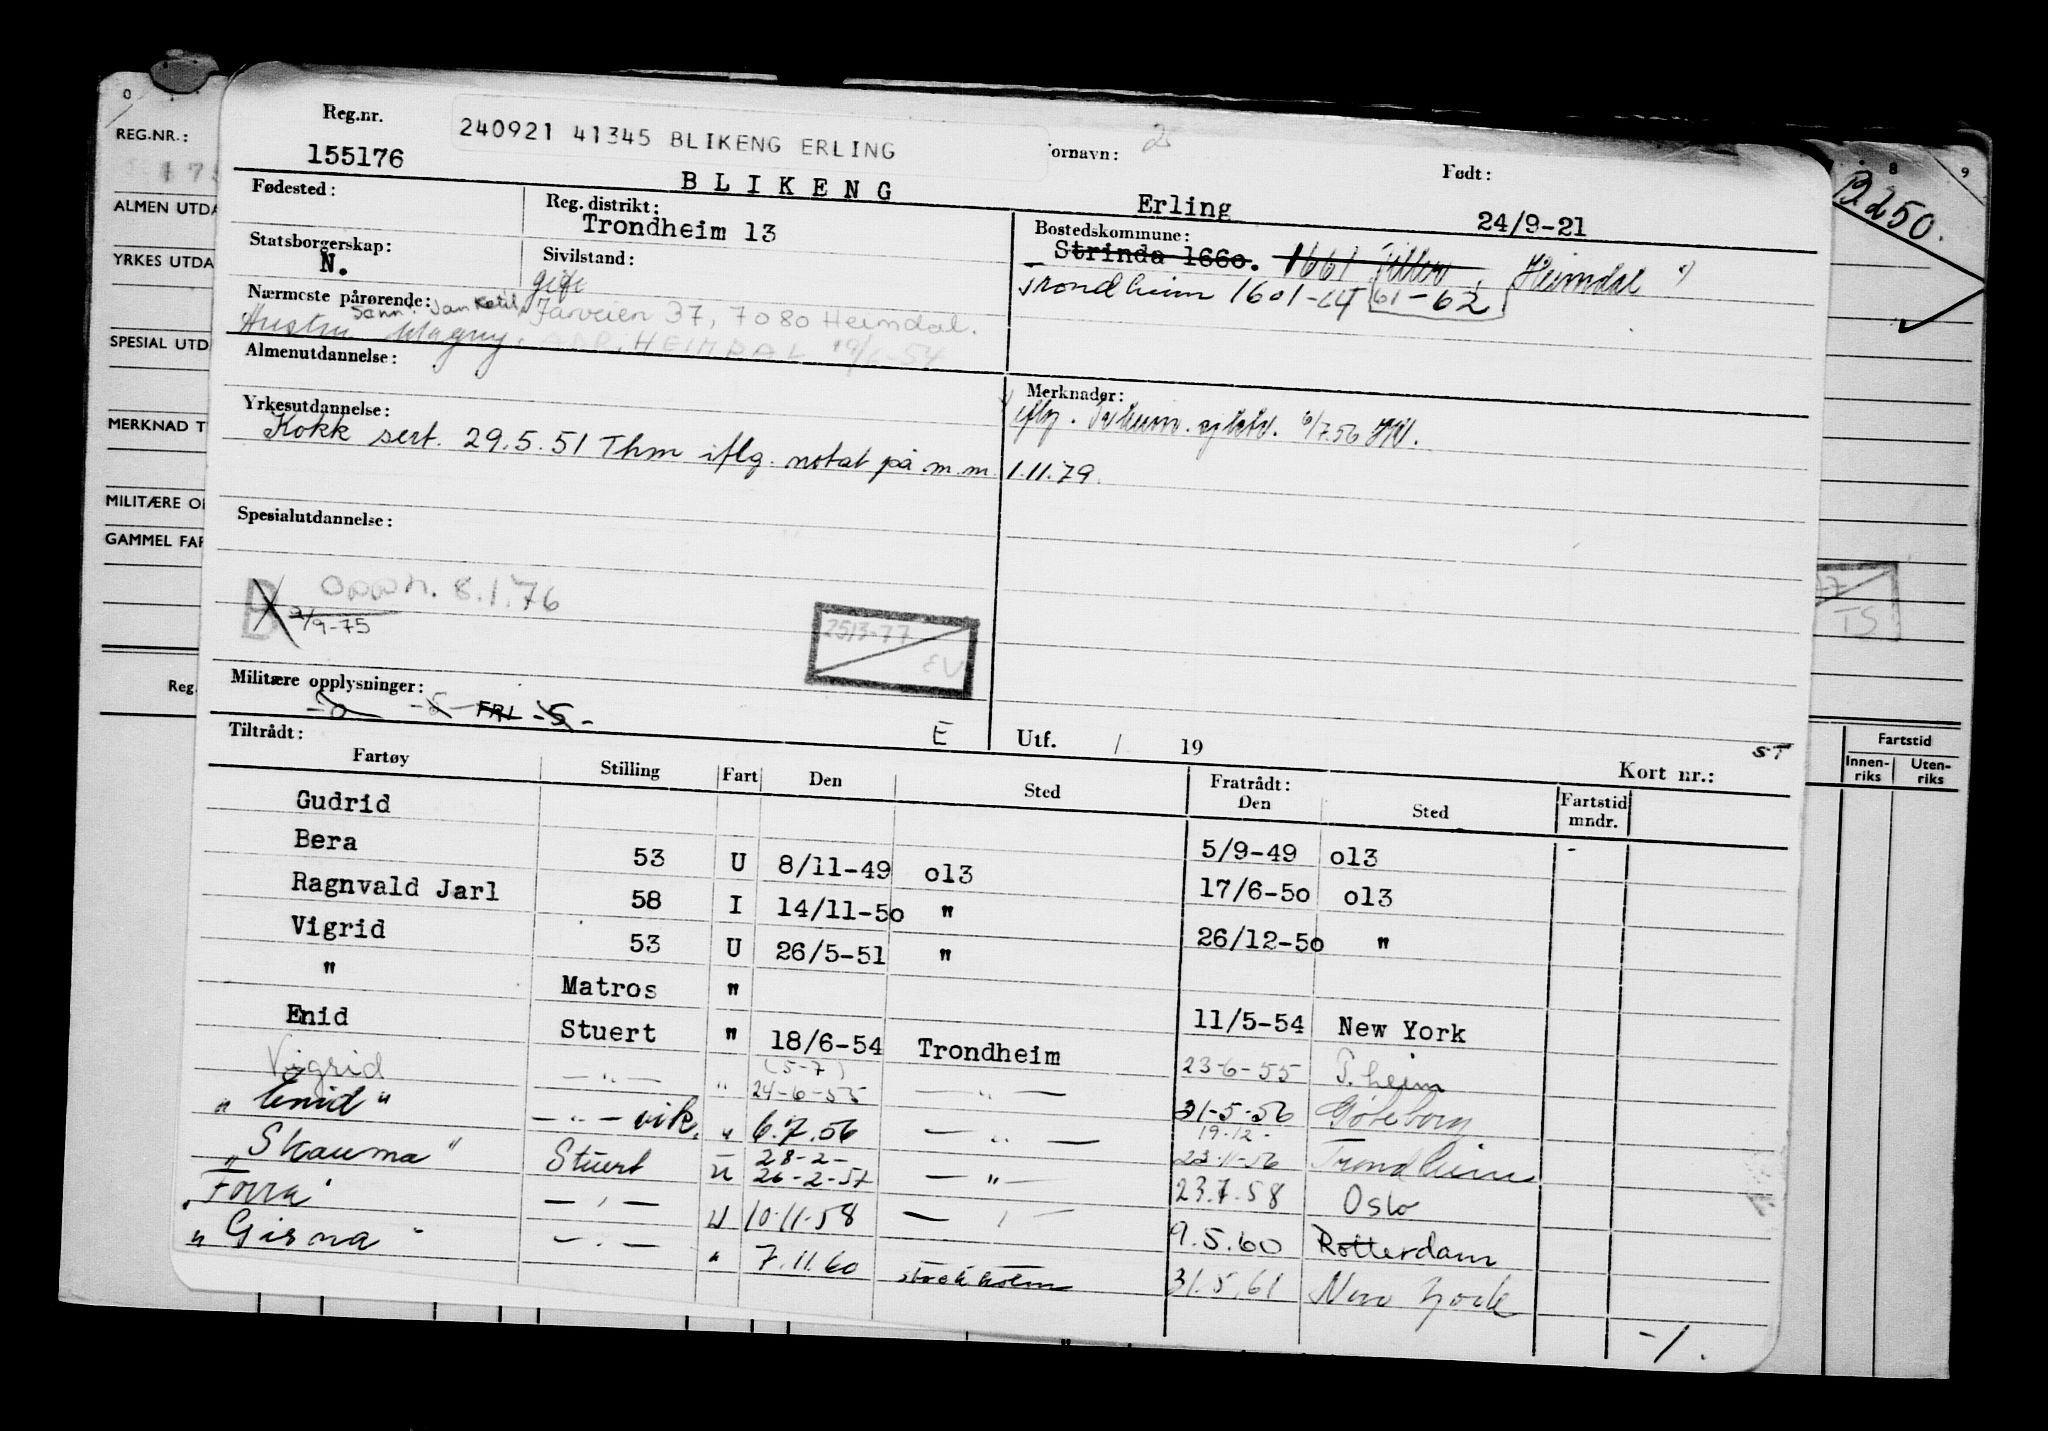 Reg.nr. 240921 41345 BLIKENG ERLING ornavn: Født:
155176 BLIKENG Erling 24/9-21
Fødested: Reg. distrikt: Trondheim 13 Bostedskommune: Strinda 1660. 1661 Tiller, Heimdal
Statsborgerskap: N. Sivilstand: gift Trondheim 1601-64 61-62
Nærmeste pårørende: Sønn: Jan Ketil, Jarveien 37, 7080 Heimdal.
Hustru Magny, ADR. HEIMDAL 19/6-54
Almenutdannelse:
Yrkesutdannelse: Merknader:
Kokk sert. 29.5.51 Thm iflg. notat på m.m. 1.11.79.
Spesialutdannelse:
Oppn. 8.1.76
B 2/9-75
2513-77
EV
Militære opplysninger:
FRL -5-
Tiltrådt: E Utf. / 19 Kort nr.: ST
Fartøy Stilling Fart Den Sted Fratrådt: Den Sted Fartstid mndr.
Gudrid 5/9-49 o13 -
Bera 53 U 8/11-49 o13 17/6-50 o13
Ragnvald Jarl 58 I 14/11-50 " 26/12-50 "
Vigrid 53 U 26/5-51 "
" Matros " 11/5-54 New York
Enid Stuert " 18/6-54 Trondheim 23-6-55 T.heim
Vigrid —"— " (5-7) 24-6-55 —"— 31-5-56 Göteborg
"Enid" —"— vik. " 6.7.56 —"— 19.12- 23-11-56 Trondheim
"Skauma" Stuert U 28-2- 26-2-57 —"— 23.7.58 Oslo
"Forra" —"— U 10.11.58 —"— 9.5.60 Rotterdam
"Gisna" —"— " 7.11.60 Stockholm 31.5.61 New York
-/.
O 8 9
REG.NR.:
ALMEN UTDA
YRKES UTDA
SPESIAL UTD
MERKNAD T
MILITÆRE O
GAMMEL FAR
Reg.
B250.
TS
Fartstid
Innen-riks Uten-riks